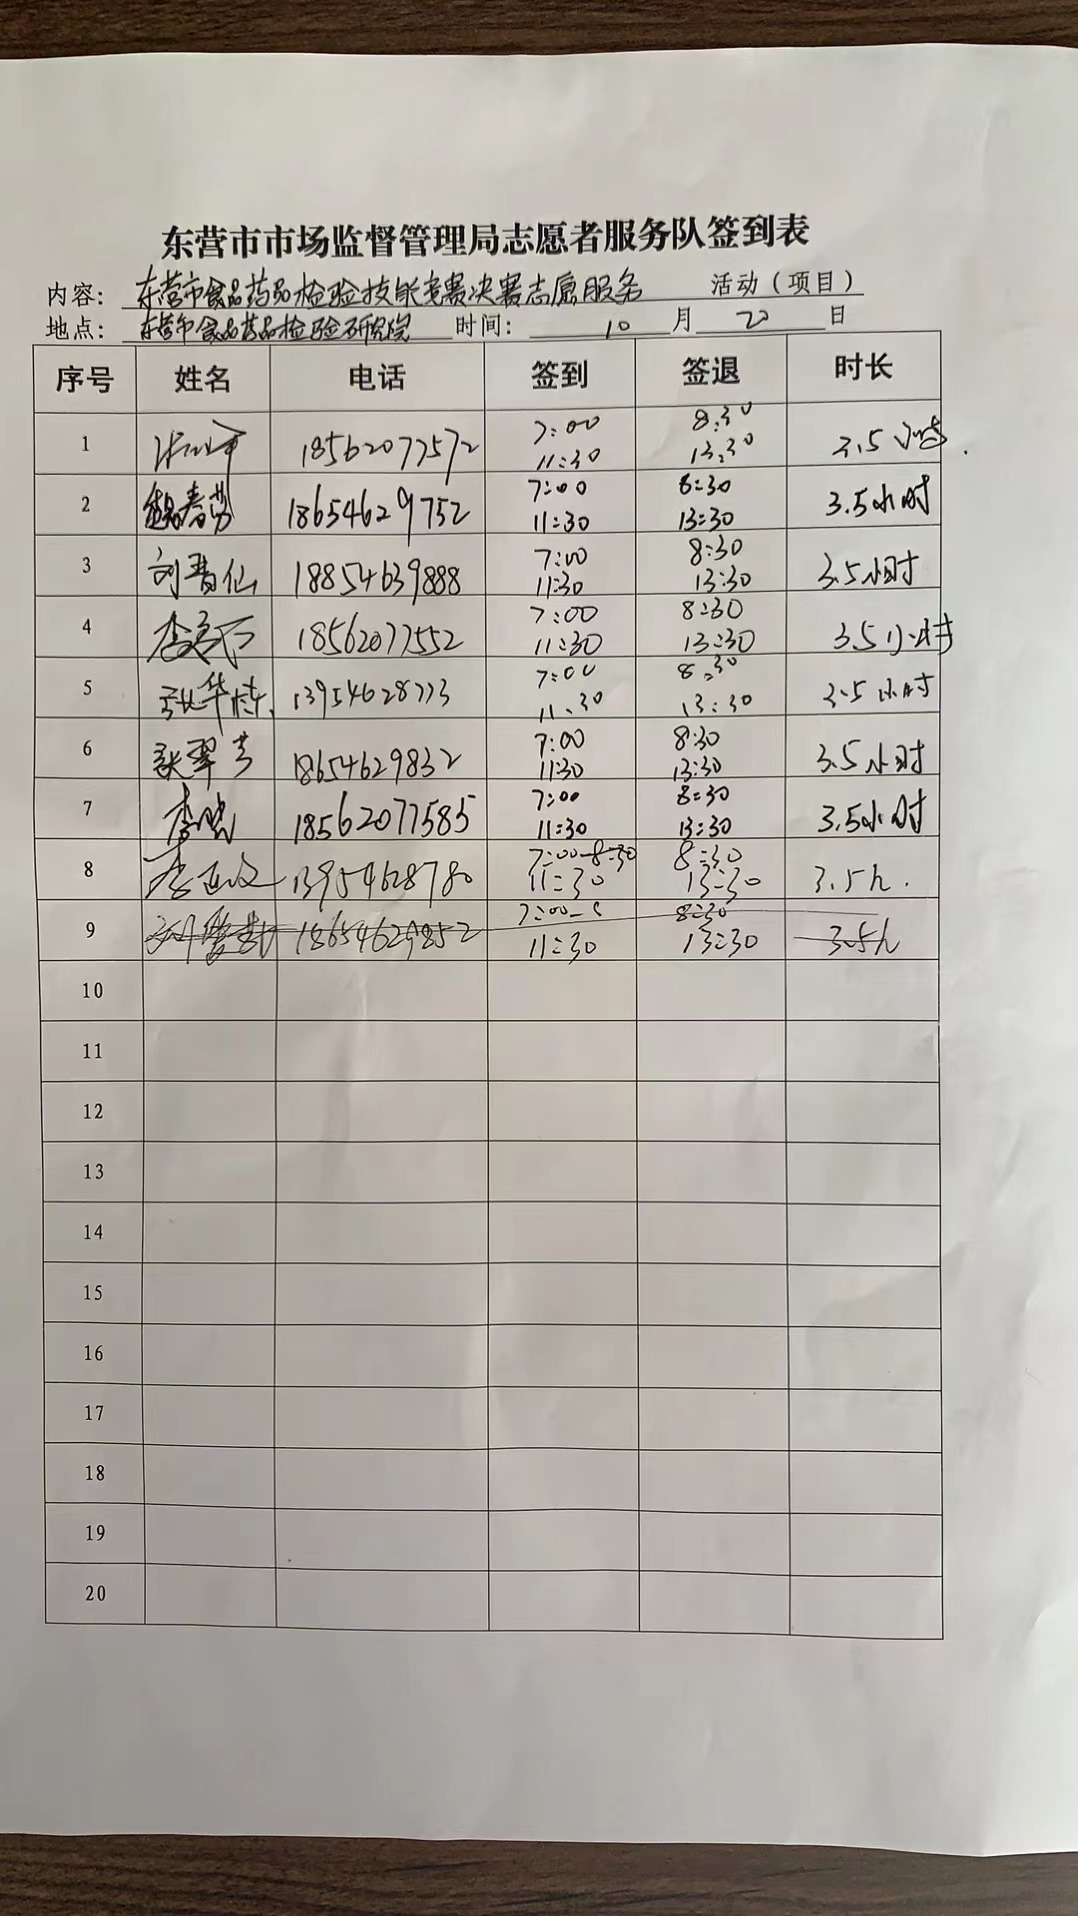 东营市市场监督管理局志愿者服务队签到表
内容：东营市食品药品检验技能竞赛决赛志愿服务 活动（项目）
地点：东营市食品药品检验研究院 时间：10月20日
序号 姓名 电话 签到 签退 时长
1 18562077572 7:00 11:30 8:30 13:30 3.5小时
2 魏春芳 18654629752 7:00 11:30 8:30 13:30 3.5小时
3 刘晋仙 18854639888 7:00 11:30 8:30 13:30 3.5小时
4 18562077552 7:00 11:30 8:30 13:30 3.5小时
5 13954628773 7:00 11:30 8:30 13:30 3.5小时
6 张翠芳 18654629832 7:00 11:30 8:30 13:30 3.5小时
7 李晓 18562077585 7:00 11:30 8:30 13:30 3.5小时
8 13954628780 7:00-8:30 11:30 8:30 13:30 3.5h.
9 18654629852 7:00- 11:30 8:30 13:30 3.5h
10
11
12
13
14
15
16
17
18
19
20